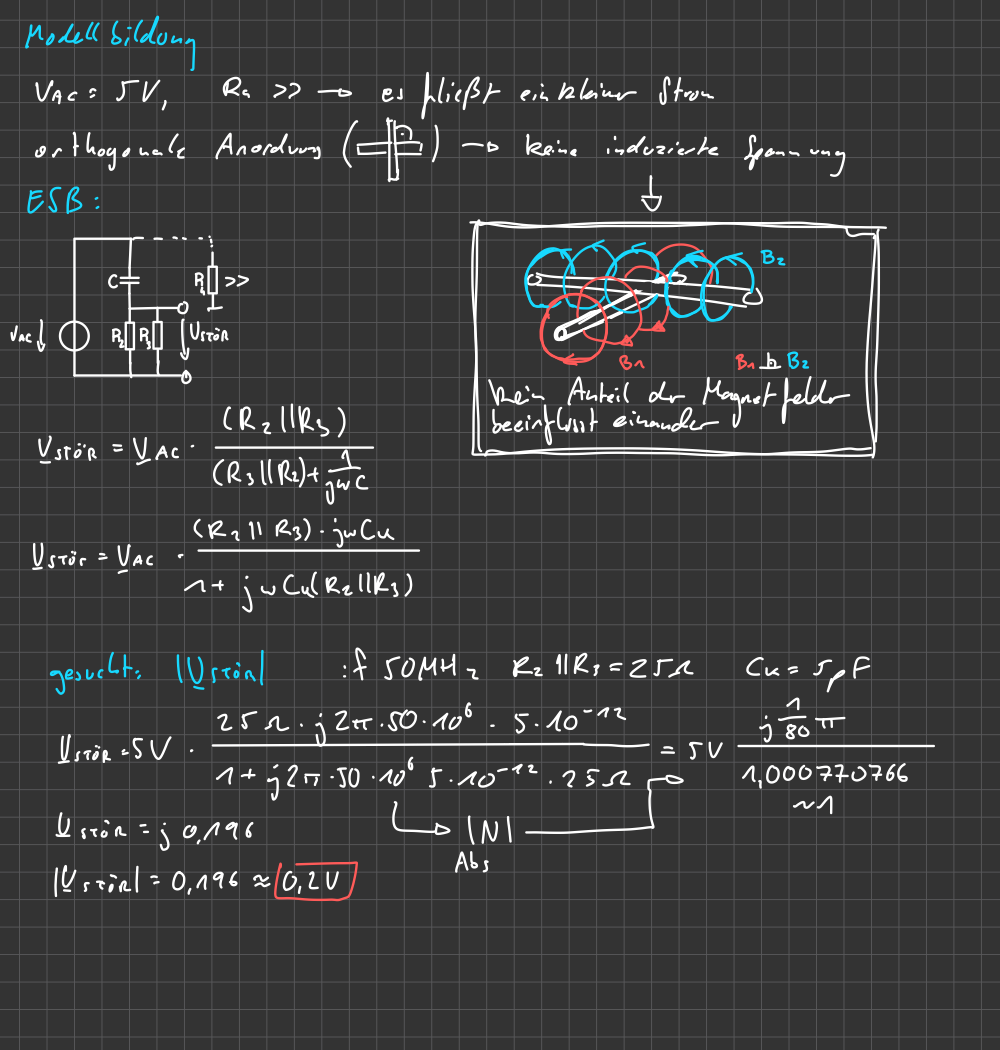 Modellbildung
V_AC = 5V, R_1 >> → es fließt ein kleiner Strom
orthogonale Anordung ( ) → keine induzierte Spannung
↓
ESB:
C
R_1 >>
V_AC ↓
R_2
R_3
↓ U_STÖR
B_2
B_1
B_1 ⊥ B_2
kein Anteil der Magnetfelder
beeinflusst einander
U_STÖR = V_AC · (R_2||R_3) / ((R_3||R_2) + 1/(jωC))
U_STÖR = V_AC · ((R_2||R_3) · jωC_K) / (1 + jωC_K(R_2||R_3))
gesucht: |U_STÖR| : f 50MHz R_2||R_3 = 25Ω C_K = 5pF
U_STÖR = 5V · (25Ω · j2π·50·10^6 · 5·10^-12) / (1 + j2π·50·10^6 5·10^-12 · 25Ω) = 5V (j 1/80 π) / 1,000770766
~1
→ |N| →
Abs
U_STÖR = j 0,196
|U_STÖR| = 0,196 ≈ 0,2V